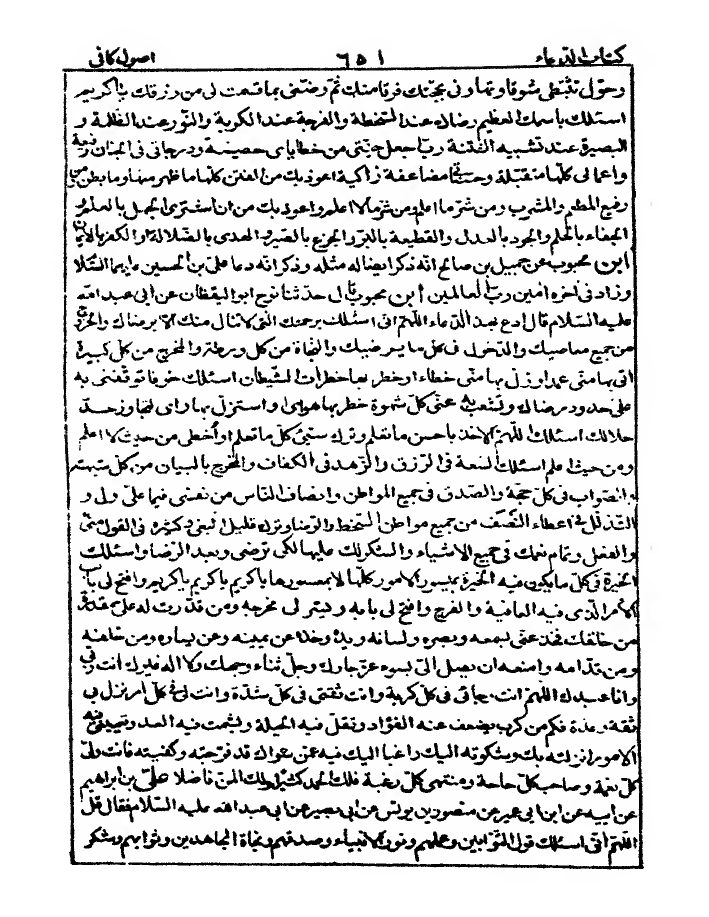 كتاب الدعاء ٦٥١ اصول كافى
وحوّل تثبّطى شوقا وتهاونى بحبّتك فرقا منك ثمّ رضّنى بما قسمت لى من رزقك يا كريم
اسئلك باسمك العظيم رضاك عند السّخطة والفرجة عند الكربة والنّور عند الظلمة و
البصيرة عند تشبيه الفتنة ربّ اجعل جنّتى من خطاياى حصينة ودرجاتى فى الجنان رفيعة
واعمالى كلّها متقبلة وحسناتى مضاعفة زاكية اعوذ بك من الفتن كلّها ما ظهر منها وما بطن من
رفيع المطعم والمشرب ومن شرّ ما اعلم ومن شرّ ما لا اعلم واعوذ بك من ان اشترى الجهل بالعلم و
الجفاء بالحلم والجور بالعدل والقطيعة بالبرّ والجزع بالصبر والهدى بالضلالة او الكفر بالايمان
ابن محبوب عن جميل بن صالح انّه ذكر ايضا له مثله وذكر انّه دعا علىّ بن الحسين عليهما السّلام
وزاد فى آخره امين ربّ العالمين ابن محبوب قال حدّثنا نوح ابو اليقظان عن ابى عبد الله
عليه السّلام قال ادع بهذا الدّعاء اللهمّ انّى اسئلك برحمتك التى لا تنال منك الّا برضاك والخروج
من جميع معاصيك والدّخول فى كلّ ما يرضيك والنّجاة من كلّ ورطة والمخرج من كلّ كبيرة
اتى بها منّى عمد او زلّ بها منّى خطاء او خطر بها خطرات الشيطان اسئلك خوفا توقفنى به
على حدود رضاك وتشعب به عنّى كلّ شهوة خطر بها هواى واستزلّ بها راى ليجاوز حدّ
حلالك اسئلك اللّهمّ الاخذ باحسن ما تعلم وترك سيّئ كلّ ما تعلم او أخطى من حيث لا اعلم
ومن حيث اعلم اسئلك السّعة فى الرّزق والزّهد فى الكفاف والمخرج بالبيان من كلّ شبهة
والصّواب فى كلّ حجّة والصّدق فى جميع المواطن وانصاف النّاس من نفسى فيما علىّ ولى و
التذلّل فى اعطاء النّصف من جميع مواطن السّخط والرّضا وترك قليل البغى وكثيره فى القول منّى
والفعل وتمام نعمك فى جميع الاشياء والشّكر لك عليها لكى ترضى وبعد الرّضا واسئلك
الخيرة فى كلّ ما يكون فيه الخيرة بميسور الامور كلّها لا بمعسورها يا كريم يا كريم يا كريم وافتح لى باب
الامر الّذى فيه العافية والفرج وافتح لى بابه ويسّر لى مخرجه ومن قدّرت له علىّ مقدرة
من خلقك فخذ عنّى بسمعه وبصره ولسانه ويده وخذه عن يمينه وعن يساره ومن خلفه
ومن قدّامه وامنعه ان يصل الىّ بسوء عزّ جارك وجلّ ثناء وجهك ولا اله غيرك انت ربّى
وانا عبدك اللهمّ انت رجائى فى كلّ كربة وانت ثقتى فى كلّ شدّة وانت لى فى كلّ امر نزل بى
ثقة وعدة فكم من كرب يضعف عنه الفؤاد وتقلّ فيه الحيلة ويشمت فيه العدوّ وتعيى فيه
الامور انزلته بك وشكوته اليك راغبا اليك فيه عمّن سواك قد فرّجته وكفيته فانت ولىّ
كلّ نعمة وصاحب كلّ حاجة ومنتهى كلّ رغبة فلك الحمد كثيرا ولك المنّ فاضلا علىّ بن ابراهيم
عن ابيه عن ابن ابى عمير عن منصور بن يونس عن ابى بصير عن ابى عبد الله عليه السّلام فقال قل
اللّهمّ انّى اسئلك قول التوّابين وعملهم ونور الانبياء وصدقهم ونجاة المجاهدين وثوابهم وشكر